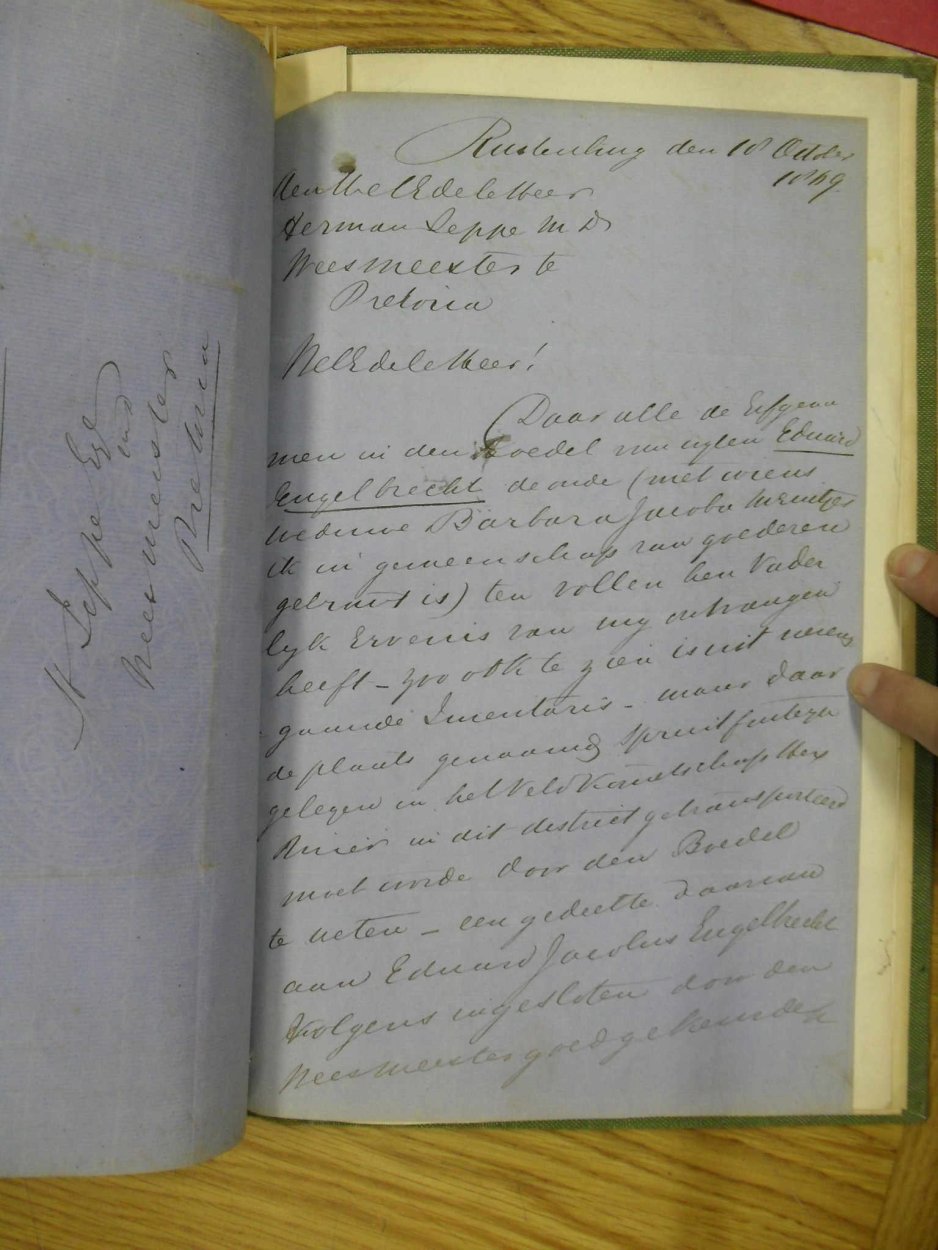 H Jeppe Esq
Weesmeester
Pretoria
Rustenburg den 18 October
1869
Den WelEdele Heer
Herman Jeppe M D
Weesmeester te
Pretoria
WelEdele Heer!
Daar alle de Erfgena
men in den Boedel van wylen Eduard
Engelbrecht de oude (met wiens
weduwe Barbara Jacoba Meintjes
ik in gemeenschap van goederen
getrout is) ten vollen hen Vader
lyk Ervenis van my ontvangen
heeft - zoo ook te zien is uit nevens
gaande Inventaris - maar daar
de plaats genaamd Spruitfontein
gelegen in het Veld Kornetschap Hex
Rivier in dit district getransporteerd
moet worde door den Boedel
te weten - een gedeelte daarvan
aan Eduard Jacobus Engelbrecht
Volgens ingesloten door den
Weesmeester goedgekeurde